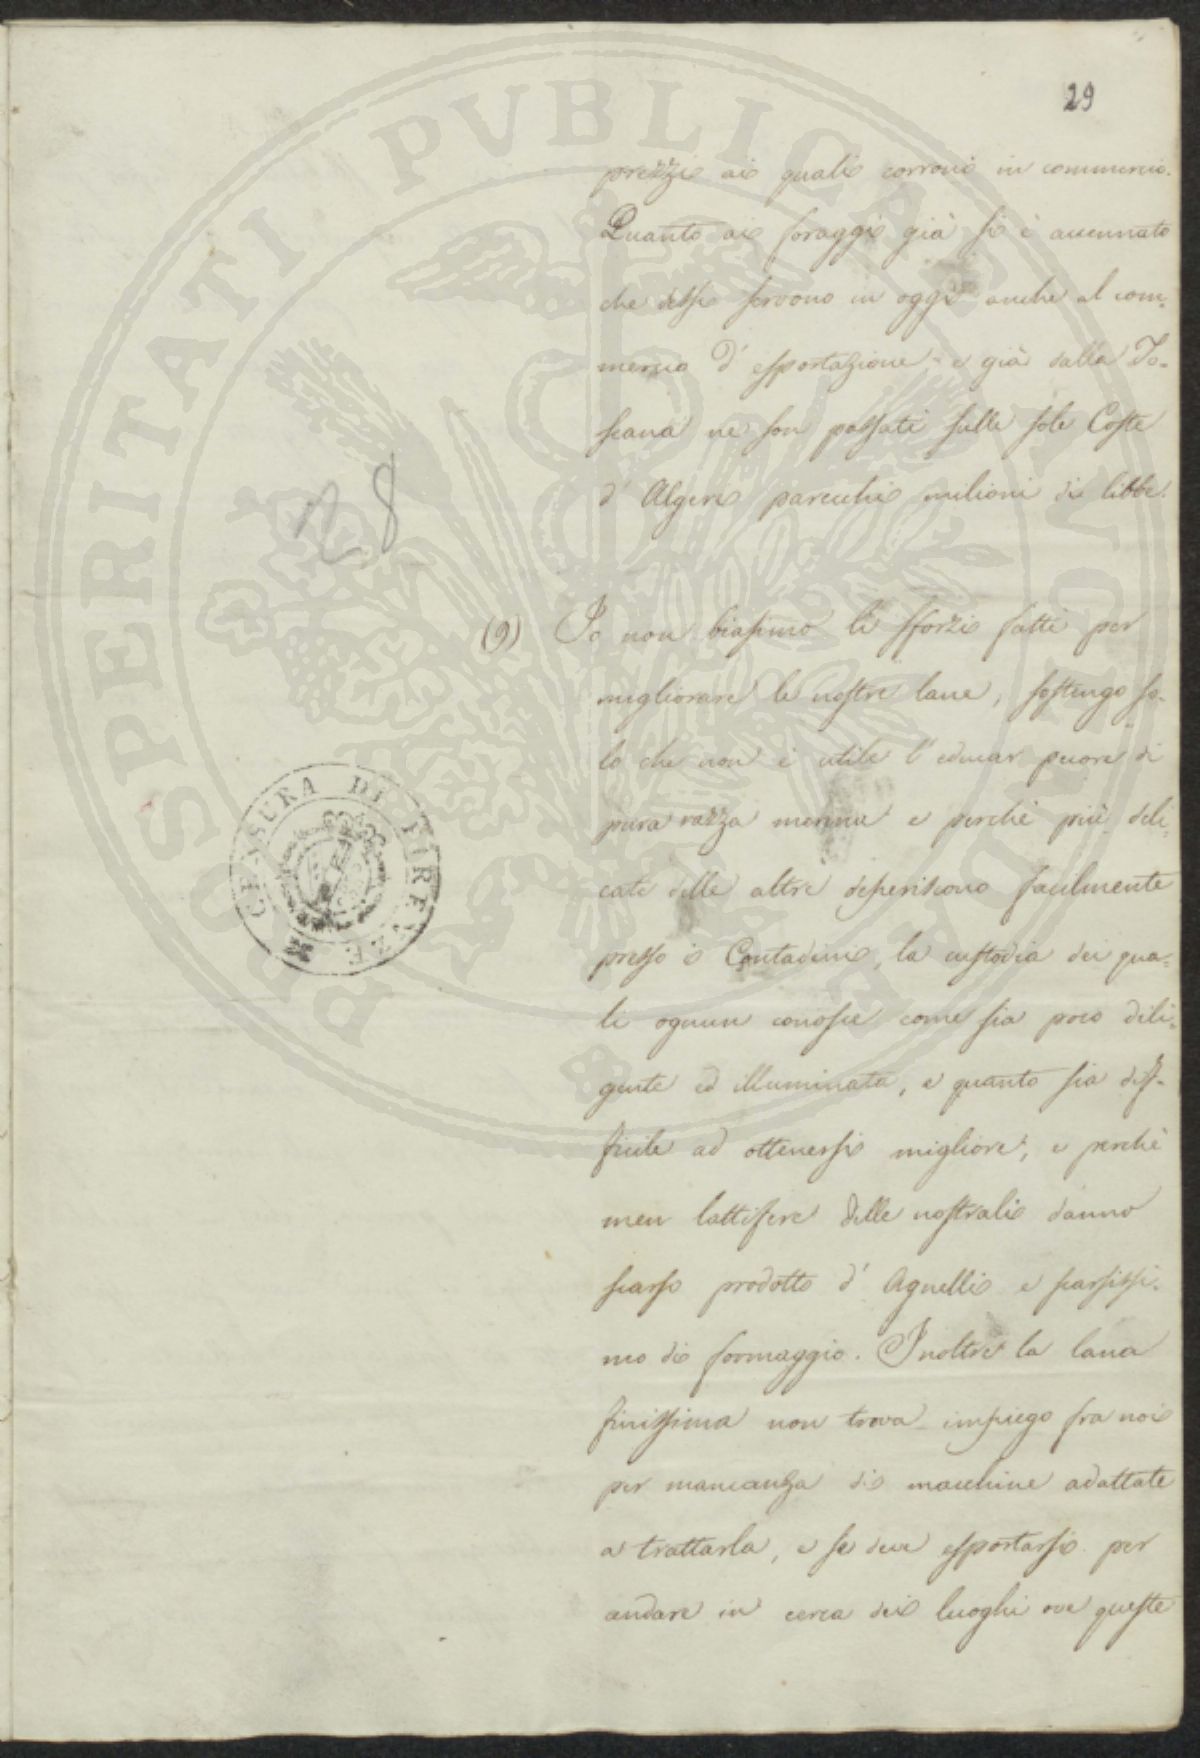 29
prezzi ai quali corrono in commercio.
Quanto ai foraggi già si è accennato
che dessi servono in oggi anche al com-
mercio d'esportazione, e già dalla To-
scana ne son passati sulle sole Coste
d'Algeri parecchi milioni di libbe.
28
(9) Io non biasimo li sforzi fatti per
migliorare le nostre lane, sostengo so-
lo che non è utile l'educar pecore di
pura razza merina e perchè più deli-
cate delle altre deperiscono facilmente
presso i Contadini, la custodia dei qua-
li ognun conosce come sia poco dili-
gente ed illuminata, e quanto sia dif-
ficile ad ottenersi migliore, e perchè
men lattifere delle nostrali danno
scarso prodotto d'Agnelli e scarsissi-
mo di formaggio. Inoltre la lana
finissima non trova impiego fra noi
per mancanza di macchine adattate
a trattarla, e se deve esportarsi per
andare in cerca dei luoghi ove queste
CENSURA DI FIRENZE
PROSPERITATI PVBLICAE AVGENDAE